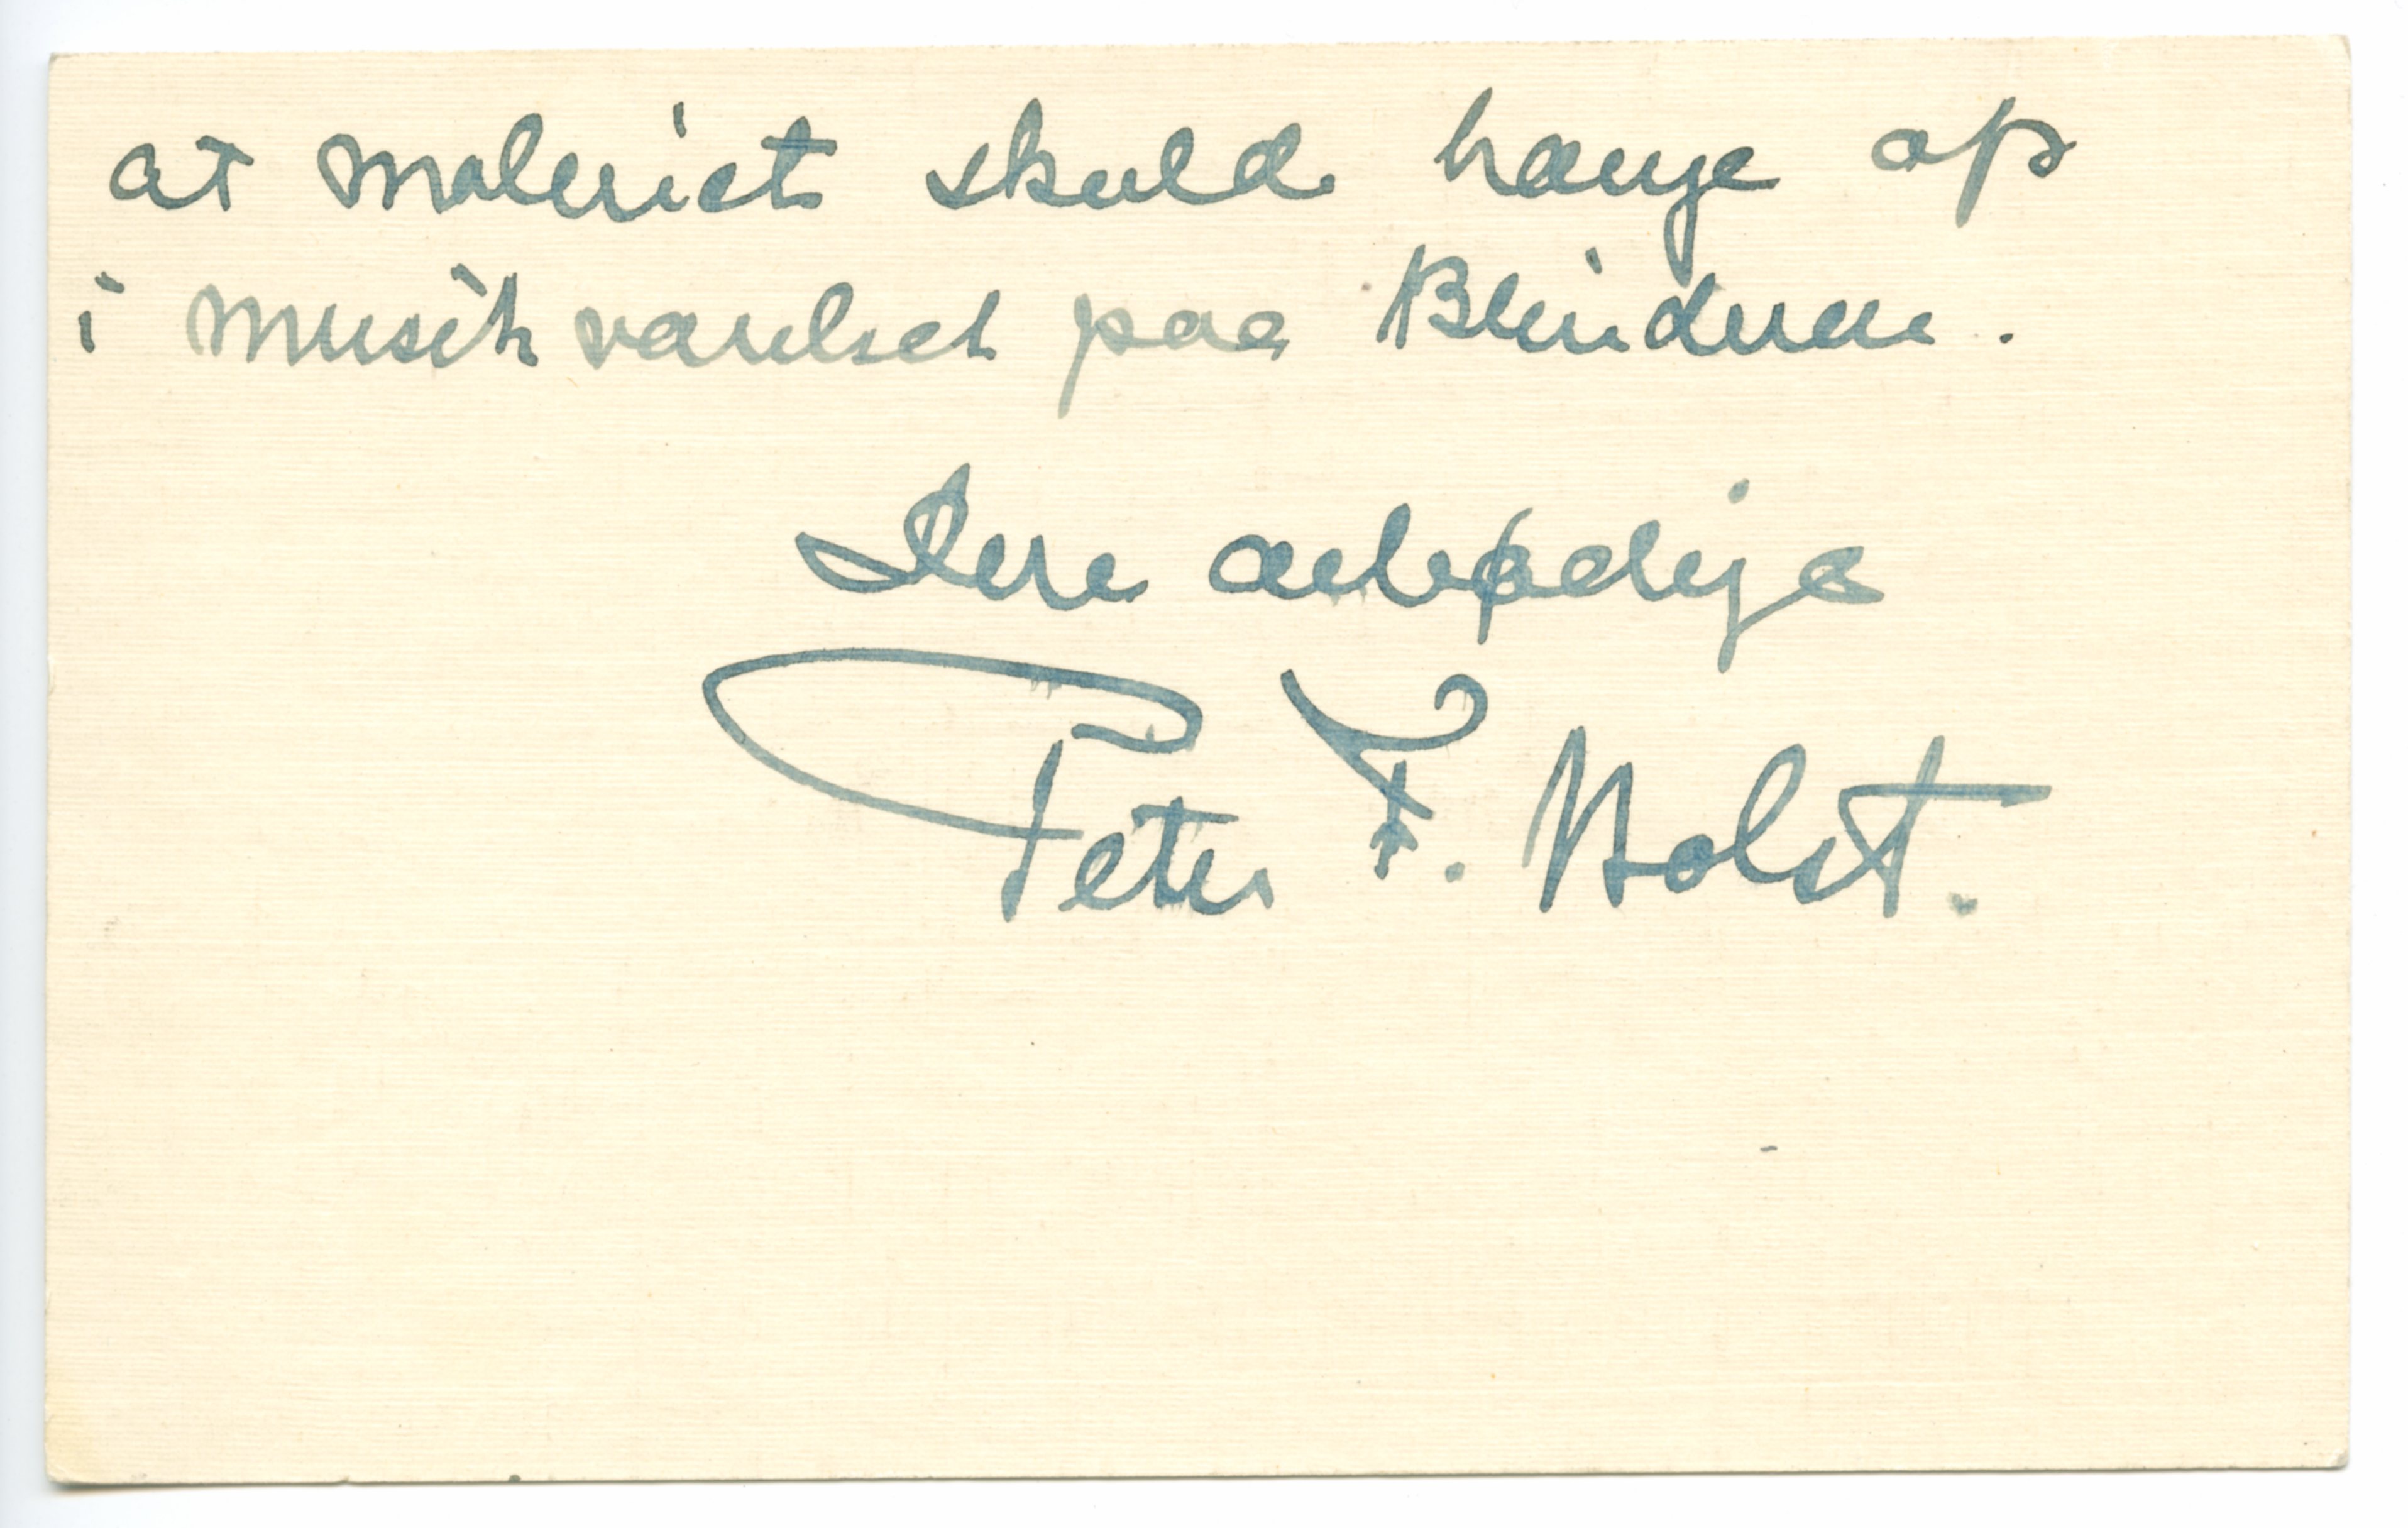 at maleriet skulde hænge op
i musikværelset paa Blindern.
Deres ærbødige
Peter F. Holst.